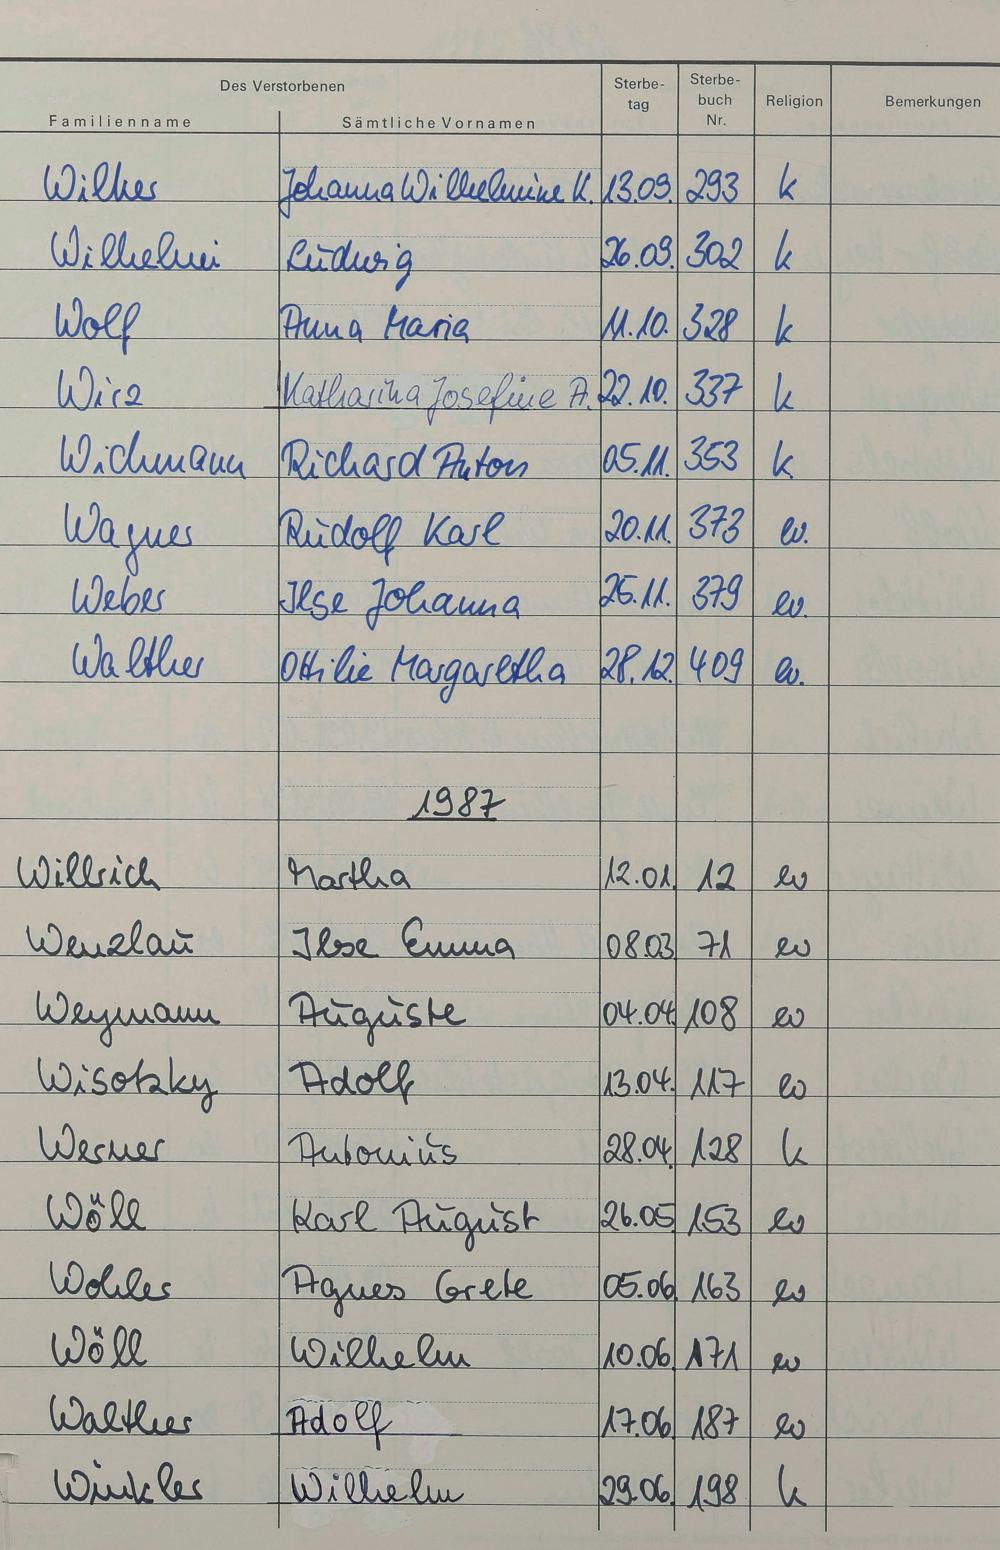 Des Verstorbenen
Familienname Sämtliche Vornamen Sterbe-tag Sterbe-buch Nr. Religion Bemerkungen
Wilker Johanna Wilhelmine K. 13.09. 293 k
Wilhelmi Ludwig 26.09. 302 k
Wolf Anna Maria 11.10. 328 k
Wirz Katharina Josefine A. 22.10. 337 k
Wichmann Richard Anton 05.11. 353 k
Wagner Rudolf Karl 20.11. 373 ev.
Weber Ilse Johanna 25.11. 379 ev.
Walther Ottilie Margaretha 28.12. 409 ev.
1987
Willrich Martha 12.01. 12 ev
Wenzlau Ilse Emma 08.03 71 ev
Weymann Auguste 04.04 108 ev
Wisotzky Adolf 13.04. 117 ev
Werner Antonius 28.04. 128 k
Wöll Karl August 26.05 153 ev
Wohler Agnes Grete 05.06 163 ev
Wöll Wilhelm 10.06 171 ev
Walther Adolf 17.06 187 ev
Winkler Wilhelm 29.06. 198 k